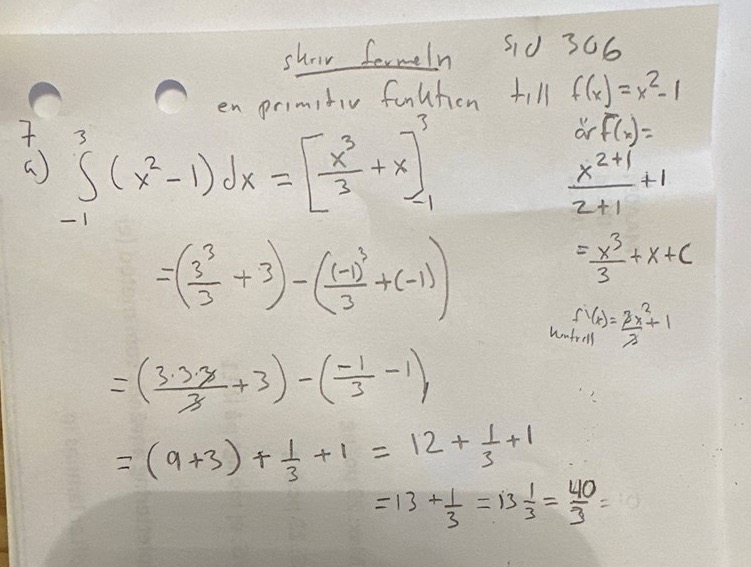 skriv formeln sid 306
en primitiv funktion till f(x) = x² - 1
är F(x) =
x^(2+1)/(2+1) + 1
= x³/3 + x + C
f'(x) = 3x²/3 + 1
kontroll
7
a) ∫₋₁³ (x² - 1) dx = [x³/3 + x]₋₁³
= (3³/3 + 3) - ((-1)³/3 + (-1))
= (3·3·3/3 + 3) - (-1/3 - 1)
= (9+3) + 1/3 + 1 = 12 + 1/3 + 1
= 13 + 1/3 = 13 1/3 = 40/3 =